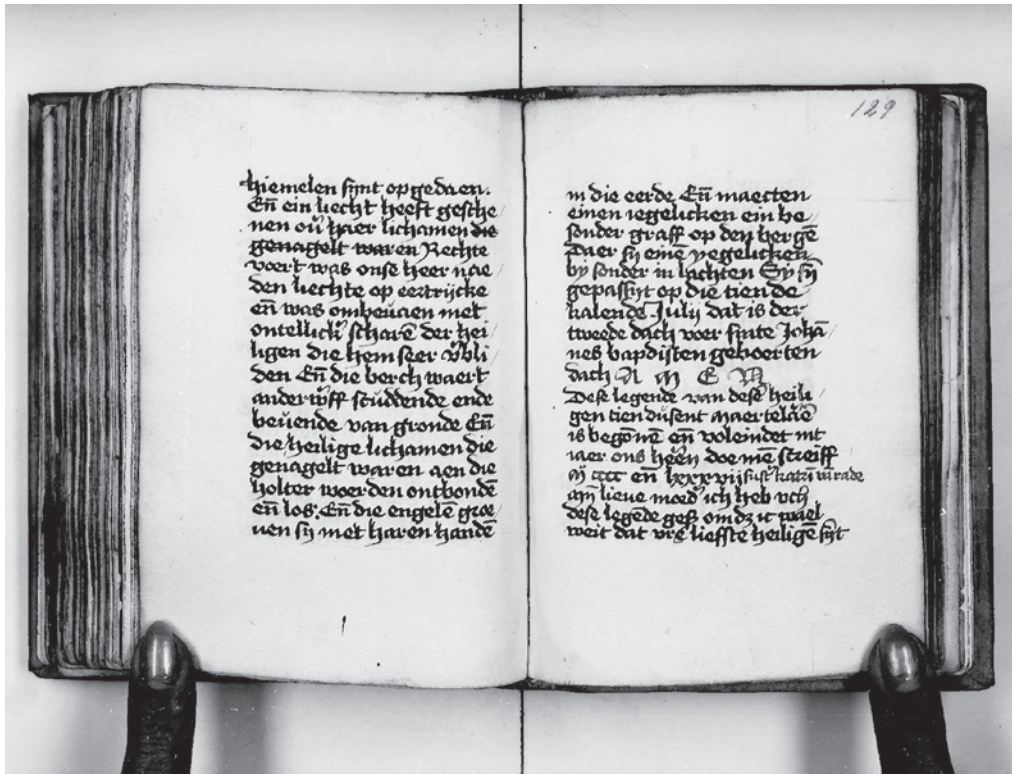 hiemelen sijnt opgedaen.
Eñ ein liecht heeft gesche/
nen ou̓ haer lichamen die
genagelt waren Rechte
voert was onse heer nae
den liechte op eertrijcke
eñ was ombeuaen met
ontellick scharē der hei/
ligen die hem seer v̓bli/
den Eñ die berch waert
anderw̓ff scuddende ende
beuende van gronde Eñ
die heilige lichamen die
genagelt waren aen die
holter woerden ontbondē
eñ los. Eñ die engelē groe/
uen sij met haren handē
129
in die eerde Eñ maecten
einen iegelicken ein be/
sonder graff op den bergē
Daer sij einē yegelicken
by sonder in lachten Sy sȳ
gepassijt op die tiende
kalende Julij dat is der
tweede dach voer sinte Johā
nes baptisten geboerten
dach A M E N
Dese legende van desē heili/
gen tien dusent maertelaē
is begōnē eñ voleindet int
iaer ons heēn doe mē screiff
M cccc eñ lxxxvij sust katrī vā rade
mȳ lieue moed̓ ich heb vch
dese legēde om dz ic wael
weit dat vre lieffste heiligē sȳt